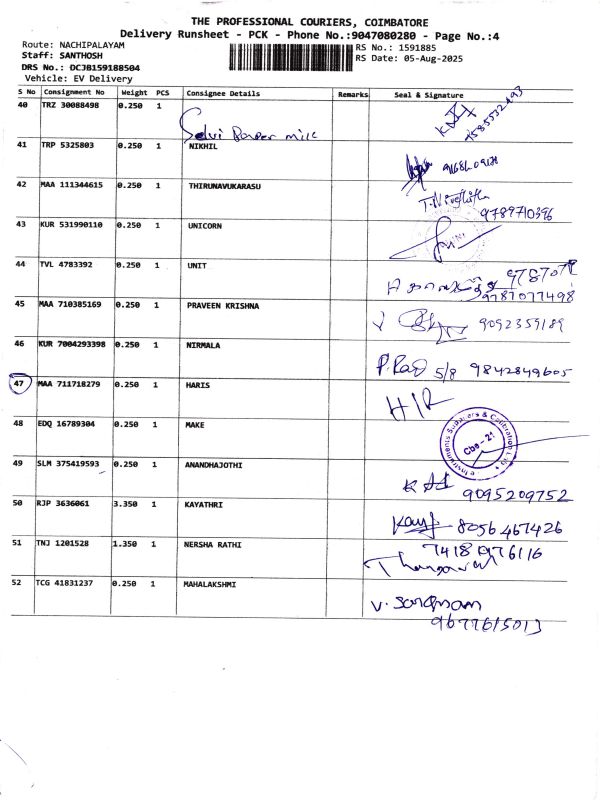 THE PROFESSIONAL COURIERS, COIMBATORE
Delivery Runsheet - PCK - Phone No.:9047080280 - Page No.:4
Route: NACHIPALAYAM
Staff: SANTHOSH
DRS No.: DCJB159188504
Vehicle: EV Delivery
RS No.: 1591885
RS Date: 05-Aug-2025
S No Consignment No Weight PCS Consignee Details Remarks Seal & Signature
40 TRZ 30088498 0.250 1 Selvi Paper mill
41 TRP 5325803 0.250 1 NIKHIL
42 MAA 111344615 0.250 1 THIRUNAVUKARASU 9789710396
43 KUR 531990110 0.250 1 UNICORN
44 TVL 4783392 0.250 1 UNIT 9787077498
45 MAA 710385169 0.250 1 PRAVEEN KRISHNA 9092359189
46 KUR 7004293398 0.250 1 NIRMALA P. Rao 5/8 9842849605
47 MAA 711718279 0.250 1 HARIS HIR
48 EDQ 16789304 0.250 1 MAKE Cbe - 21
49 SLM 375419593 0.250 1 ANANDHAJOTHI 9095209752
50 RJP 3636061 3.350 1 KAYATHRI 8056467426
51 TNJ 1201528 1.350 1 NERSHA RATHI
52 TCG 41831237 0.250 1 MAHALAKSHMI 9677615013